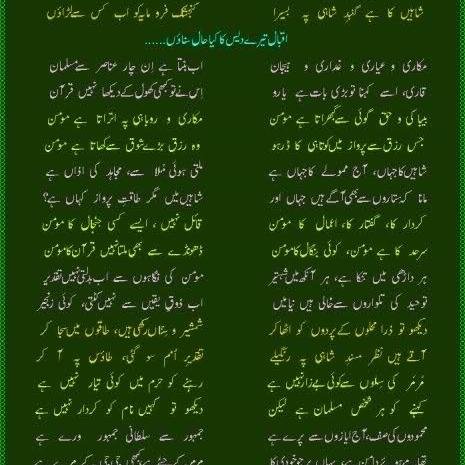 شاہیں کا ہے گنبدِ شاہی پہ بسیرا
کنجشک فرومایہ کو اب کس سے لڑاؤں
اقبال تیرے دیس کا کیا حال سناؤں......
مکاری و عیاری و غداری و ہیجان
اب بنتا ہے اِن چار عناصر سے مسلمان
قاری، اسے کہنا تو بڑی بات ہے یارو
اِس نے تو کبھی کھول کے دیکھا نہیں قرآن
بیباکی و حق گوئی سے گھبراتا ہے مومن
مکاری و روباہی پہ اتراتا ہے مومن
جس رزق سے پرواز میں کوتاہی کا ڈر ہو
وہ رزق بڑے شوق سے کھاتا ہے مومن
شاہیں کا جہاں، آج ممولے کا جہاں ہے
ملتی ہوئی مُلا سے، مجاہد کی اذاں ہے
مانا کہ ستاروں سے بھی آگے ہیں جہاں اور
شاہیں میں مگر طاقتِ پرواز کہاں ہے؟
کردار کا، گفتار کا، اعمال کا مومن
قائل نہیں، ایسے کسی جنجال کا مومن
سرحد کا ہے مومن، کوئی بنگال کا مومن
ڈھونڈے سے بھی ملتا نہیں قرآن کا مومن
ہر داڑھی میں تنکا ہے، ہر آنکھ میں شہتیر
مومن کی نگاہوں سے اب بدلتی نہیں تقدیر
توحید کی تلواروں سے خالی ہیں نیامیں
اب ذوقِ یقیں سے نہیں کٹتی، کوئی زنجیر
دیکھو تو ذرا محلوں کے پردوں کو اٹھا کر
شمشیر و سناں رکھی ہیں، طاقوں میں سجا کر
آتے ہیں نظر مسندِ شاہی پہ رنگیلے
تقدیرِ اُمم سو گئی، طاؤس پہ آ کر
مرمر کی سِلوں سے کوئی بے زار نہیں ہے
رہنے کو حرم میں کوئی تیار نہیں ہے
کہنے کو ہر شخص مسلمان ہے لیکن
دیکھو تو کہیں نام کو کردار نہیں ہے
محمودوں کی صف، آج ایازوں سے پرے ہے
جمہور سے سلطانی جمہور ورے ہے